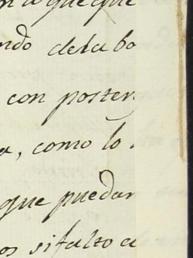 n a que que
ndo dela bo
con poster
a, como lo
que puedan
os sifalto a